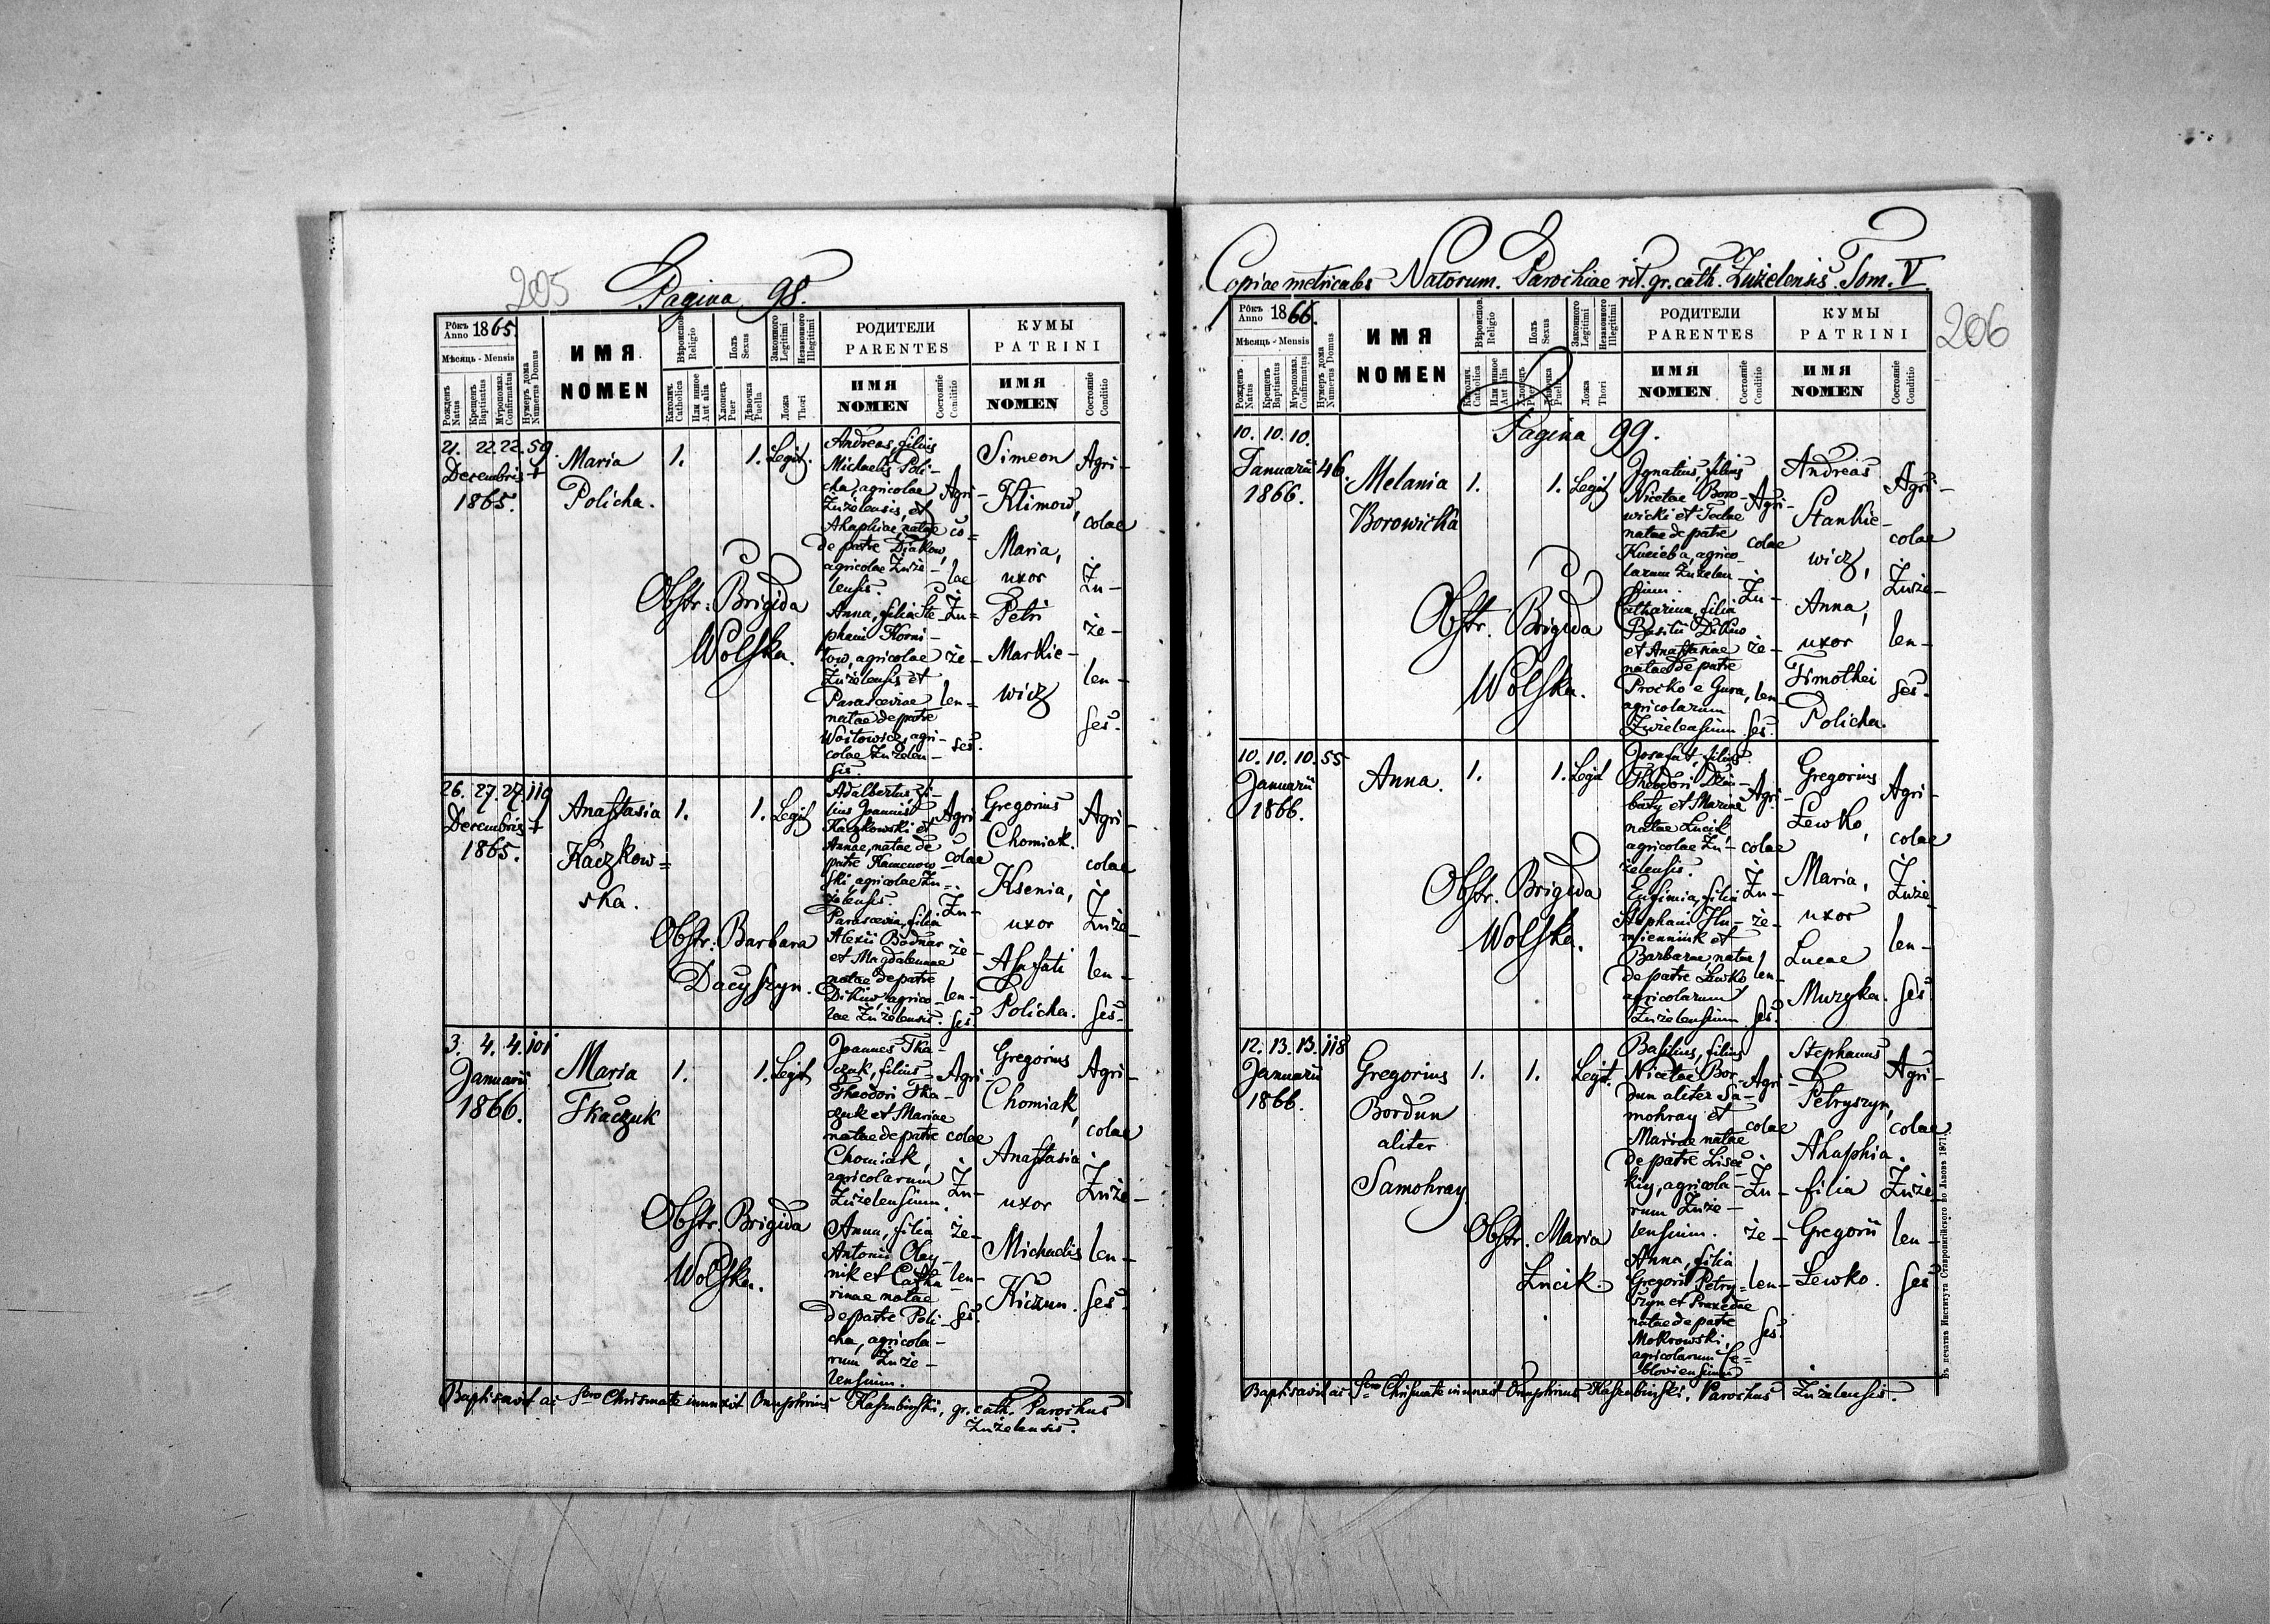 205
Pagina 98.
Рôкъ Anno 1865
Мѣсяць - Mensis
Рожденъ Natus
Крещенъ Baptisatus
Муропомаз. Confirmatus
Нумеръ дома Numerus Domus
ИМЯ
NOMEN
Вѣроиспов. Religio
Католич. Catholica
Или инное Aut alia
Полъ Sexus
Хлопець Puer
Дѣвочка Puella
Законного Legitimi
Незаконного Illegitimi
Ложа Thori
РОДИТЕЛИ
PARENTES
ИМЯ
NOMEN
Состоянiе Conditio
КУМЫ
PATRINI
ИМЯ
NOMEN
Состоянiе Conditio
21. 22. 22. 59.
Decembris +
1865.
Maria
Policha.
1. 1. Legit.
Andreas, filius
Michaelis Poli-
cha, agricolae
Żużelensis, et
Ahaphiae, natae
de patre Diakow,
agricolae Żuże-
lensis.
Anna, filia Ste-
phani Korni-
tow, agricolae
Żużelensis et
Parasceviae
natae de patre
Woitowicz, agri-
colae Żużelen-
sis.
Agri-
co-
lae
Żu-
że-
len-
ses.
Simeon
Klimow,
Maria,
uxor
Petri
Markie-
wicz
Agri-
colae
Żu-
że-
len-
ses.
Obstr: Brigida
Wolska.
26. 27. 27. 119
Decembris +
1865.
Anastasia
Kaczkow-
ska.
1. 1. Legit
Adalbertus fi-
lius Joannis
Kaczkowski et
Annae, natae de
patre Kamenow-
ski, agricolae Żu-
żelensis.
Parascevia, filia
Alexii Bodnar
et Magdalennae
natae de patre
Dikiw, agrico-
lae Żużelensis.
Agri-
colae
Żu-
że-
len-
ses.
Gregorius
Chomiak.
Ksenia,
uxor
Ahafati
Policha.
Agri-
colae
Żuże-
len-
ses.
Obstr: Barbara
Dacyszyn.
3. 4. 4. 101
Januarii
1866.
Maria
Tkaczuk
1. 1. Legit
Joannes Tka-
czuk, filius
Theodori Tka-
czuk et Mariae
natae de patre
Chomiak,
agricolarum
Żużelensium.
Anna, filia
Antonii Oley-
nik et Catha-
rinae natae
de patre Poli-
cha, agricola-
rum Żuże-
lensium.
Agri-
colae
Żu-
że-
len-
ses.
Gregorius
Chomiak,
Anastasia
uxor
Michaelis
Kiczun.
Agri-
colae
Żuże-
len-
ses.
Obstr. Brigida
Wolska.
Baptisavit ac Scro Chrismate inunxit Onuphrius Kaszubinski, gr. cath. Parochus
Żużelensis.
Copiae metricales Natorum. Parochiae rit. gr. cath. Żużelensis. Tom. V
206
Рôкъ Anno 1866.
Мѣсяць - Mensis
Рожденъ Natus
Крещенъ Baptisatus
Муропомаз. Confirmatus
Нумеръ дома Numerus Domus
ИМЯ
NOMEN
Вѣроиспов. Religio
Католич. Catholica
Или инное Aut alia
Полъ Sexus
Хлопець Puer
Дѣвочка Puella
Законного Legitimi
Незаконного Illegitimi
Ложа Thori
РОДИТЕЛИ
PARENTES
ИМЯ
NOMEN
Состоянiе Conditio
КУМЫ
PATRINI
ИМЯ
NOMEN
Состоянiе Conditio
Pagina 99.
10. 10. 10.
Januarii 46.
1866.
Melania
Borowicka
1. 1. Legit
Ignatius, filius
Nicetae Boro-
wicki et Teclae
natae de patre
Kucieba, agrico-
larum Żużelen-
sium.
Catharina, filia
Basilii Dikiw
et Anastasiae
natae de patre
Procko e Gura,
agricolarum
Żużelensium.
Agri-
colae
Żu-
że-
len
ses.
Andreas
Stankie-
wicz,
Anna,
uxor
Timothei
Policha.
Agri-
colae
Żuże-
len-
ses.
Obstr. Brigida
Wolska.
10. 10. 10. 55
Januarii
1866.
Anna.
1. 1. Legit
Josafat, filius
Theodori Dziu-
baty et Mariae
natae Łucik,
agricolae Żu-
żelensis.
Eufimia, filia
Stephani Hlu-
miennink et
Barbarae, natae
de patre Lewko
agricolarum
Żużelensium
Agri-
colae
Żu-
że-
len-
ses.
Gregorius
Lewko,
Maria,
uxor
Lucae
Muzyka.
Agri-
colae
Żuże-
len-
ses.
Obstr. Brigida
Wolska.
12. 13. 13. 118
Januarii
1866.
Gregorius
Bordun
aliter
Samohray
1. 1. Legit.
Basilius, filius
Nicetae Bor-
dun aliter Sa-
mohray et
Mariae natae
de patre Lisec-
kiy, agricola-
rum Żuże-
lensium.
Anna, filia
Gregorii Petry-
szyn et Praxedae
natae de patre
Mokrowski,
agricolarum
bloviensium
Agri-
colae
Żu-
że-
len-
ses.
Stephanus
Petryszyn,
Ahaphia.
filia
Gregorii
Lewko.
Agri-
colae
Żuże-
len-
ses
Obstr. Maria
Łucik.
Baptisavit ac Scro Chrismate inunxit Onuphrius Kaszubinski. Parochus Żużelensis.
Въ печатнѣ Института Ставропигійского во Львовѣ 1871.